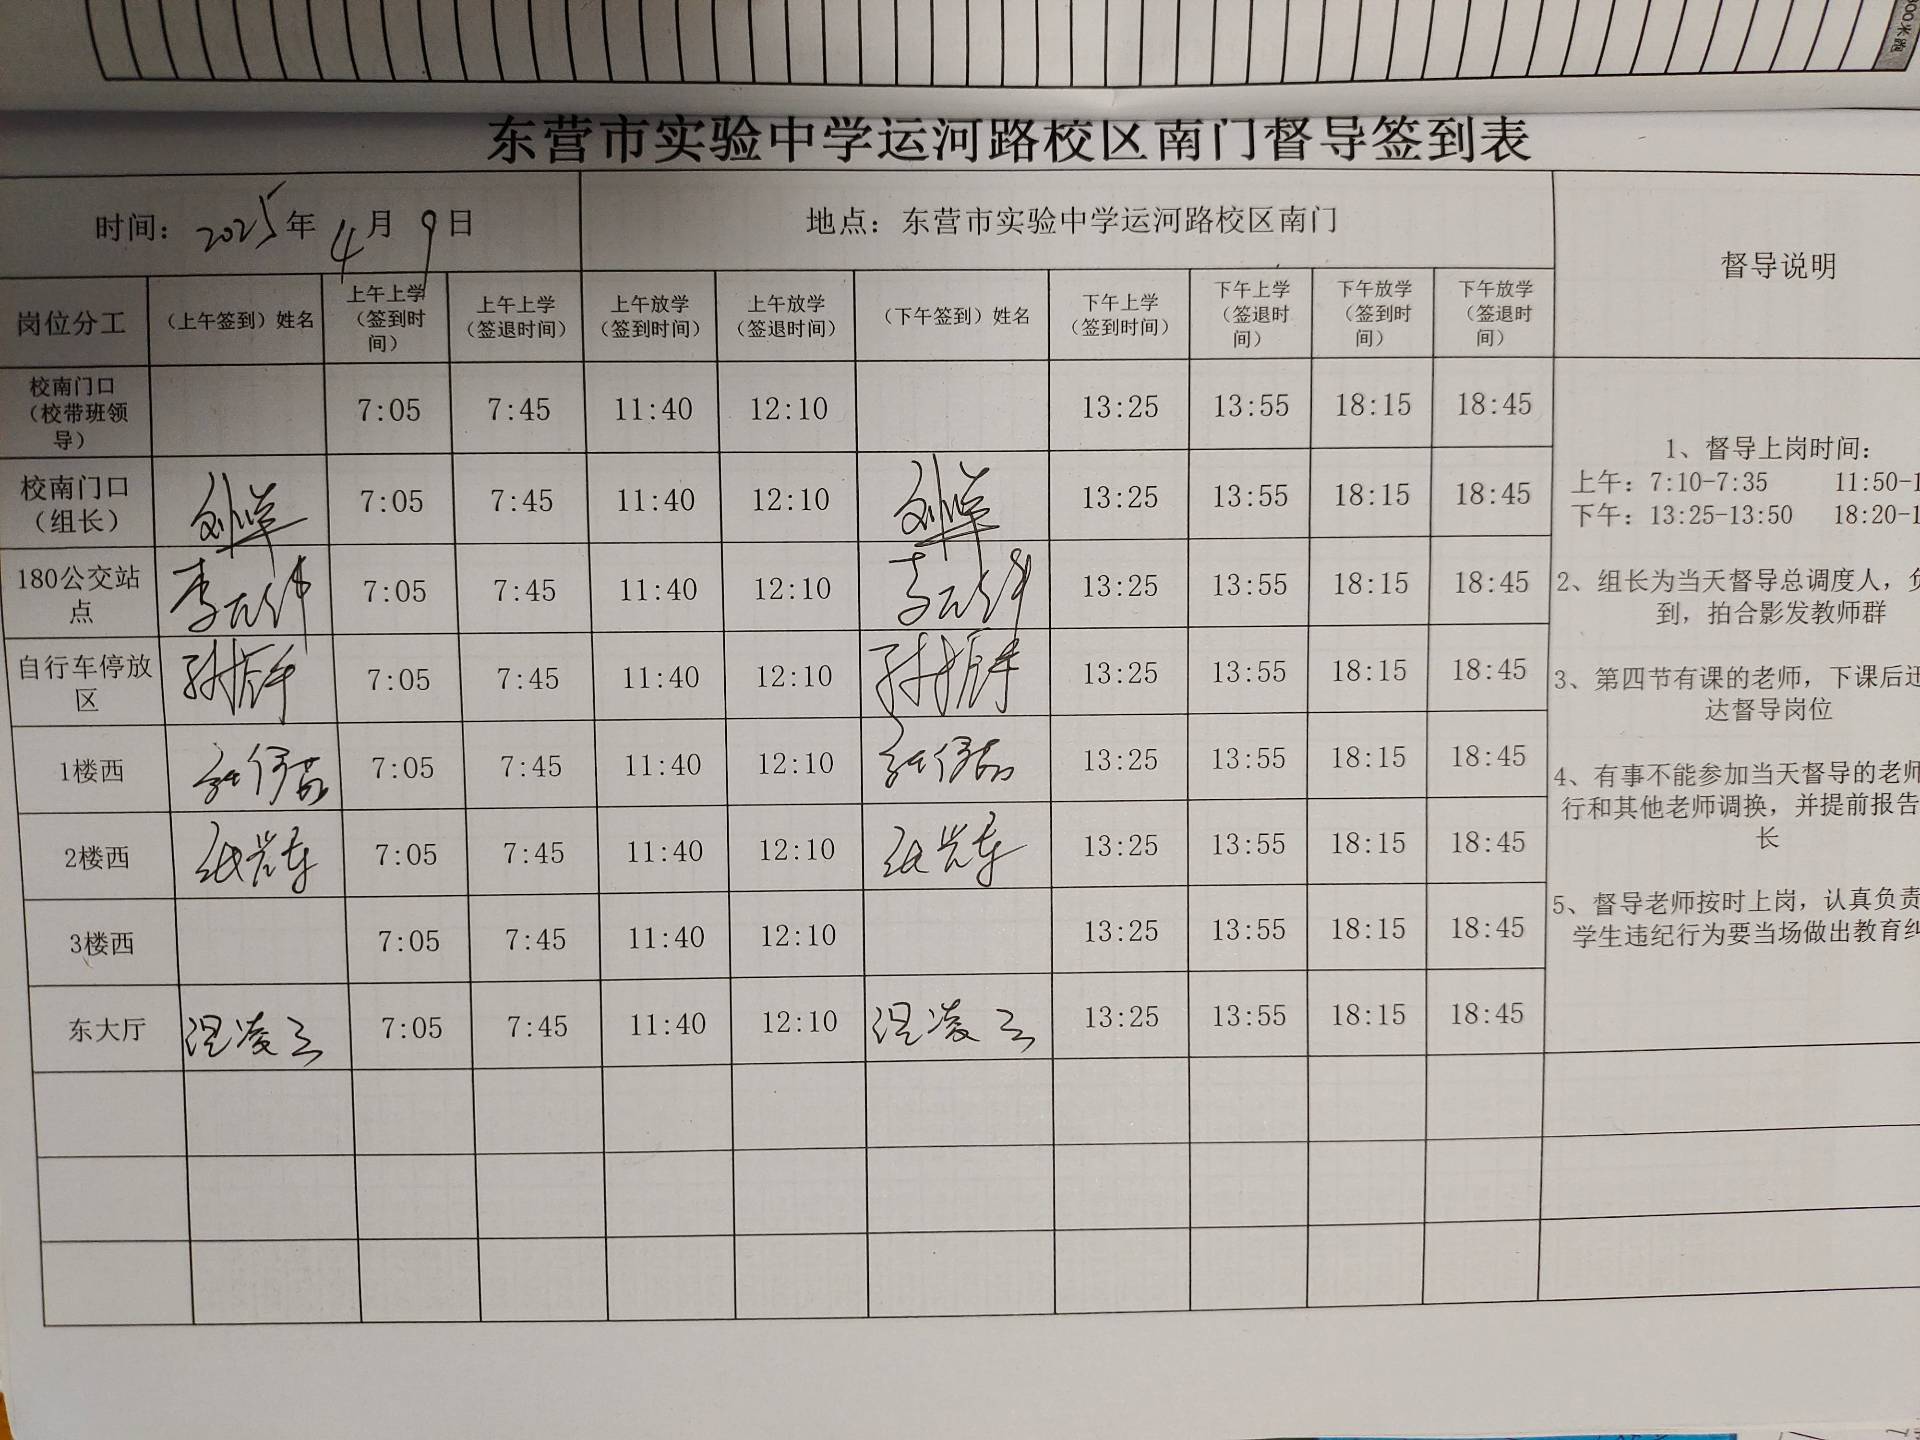 东营市实验中学运河路校区南门督导签到表
时间：2025年4月9日
地点：东营市实验中学运河路校区南门
督导说明
岗位分工
（上午签到）姓名
上午上学
（签到时
间）
上午上学
（签退时间）
上午放学
（签到时间）
上午放学
（签退时间）
（下午签到）姓名
下午上学
（签到时间）
下午上学
（签退时
间）
下午放学
（签到时
间）
下午放学
（签退时
间）
校南门口
（校带班领
导）
7:05 7:45 11:40 12:10 13:25 13:55 18:15 18:45
校南门口
（组长）
7:05 7:45 11:40 12:10 13:25 13:55 18:15 18:45
180公交站
点
7:05 7:45 11:40 12:10 13:25 13:55 18:15 18:45
自行车停放
区
7:05 7:45 11:40 12:10 13:25 13:55 18:15 18:45
1楼西 7:05 7:45 11:40 12:10 13:25 13:55 18:15 18:45
2楼西 7:05 7:45 11:40 12:10 13:25 13:55 18:15 18:45
3楼西 7:05 7:45 11:40 12:10 13:25 13:55 18:15 18:45
东大厅 7:05 7:45 11:40 12:10 13:25 13:55 18:15 18:45
1、督导上岗时间：
上午：7:10-7:35 11:50-1
下午：13:25-13:50 18:20-1
2、组长为当天督导总调度人，负
到，拍合影发教师群
3、第四节有课的老师，下课后迅
达督导岗位
4、有事不能参加当天督导的老师
行和其他老师调换，并提前报告
长
5、督导老师按时上岗，认真负责
学生违纪行为要当场做出教育纠